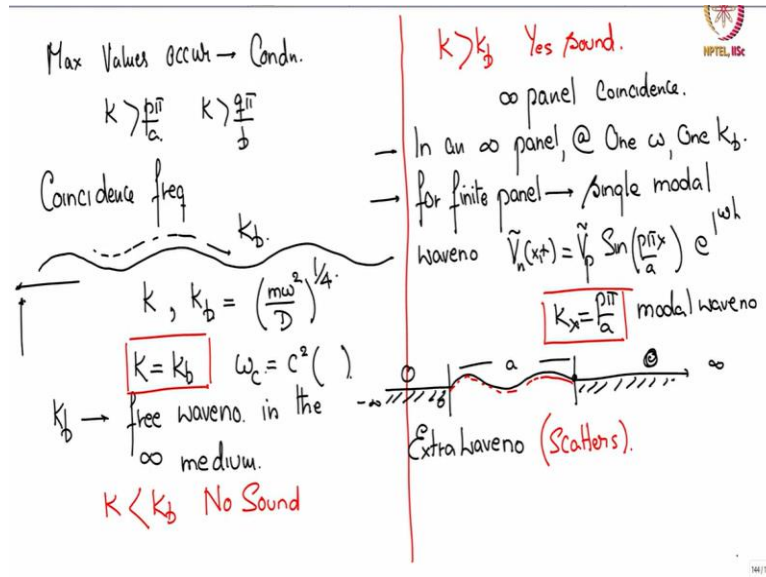 Max Values occur → Condn.
k > pπ/a k > qπ/b
Coincidence freq
k_b.
k, k_b = (mω²/D)^1/4.
k = k_b ω_c = c² ( ).
k_b → free waveno. in the
∞ medium.
k < k_b No Sound
k > k_b Yes sound.
∞ panel Coincidence.
→ In an ∞ panel, @ One ω, One k_b.
→ for finite panel → single modal
waveno Ṽ_n(x,t) = Ṽ_p Sin(pπx/a) e^jωt
k_x = pπ/a modal waveno
0 a 0 ∞
-∞
Extra waveno (Scatters).
NPTEL, IISc